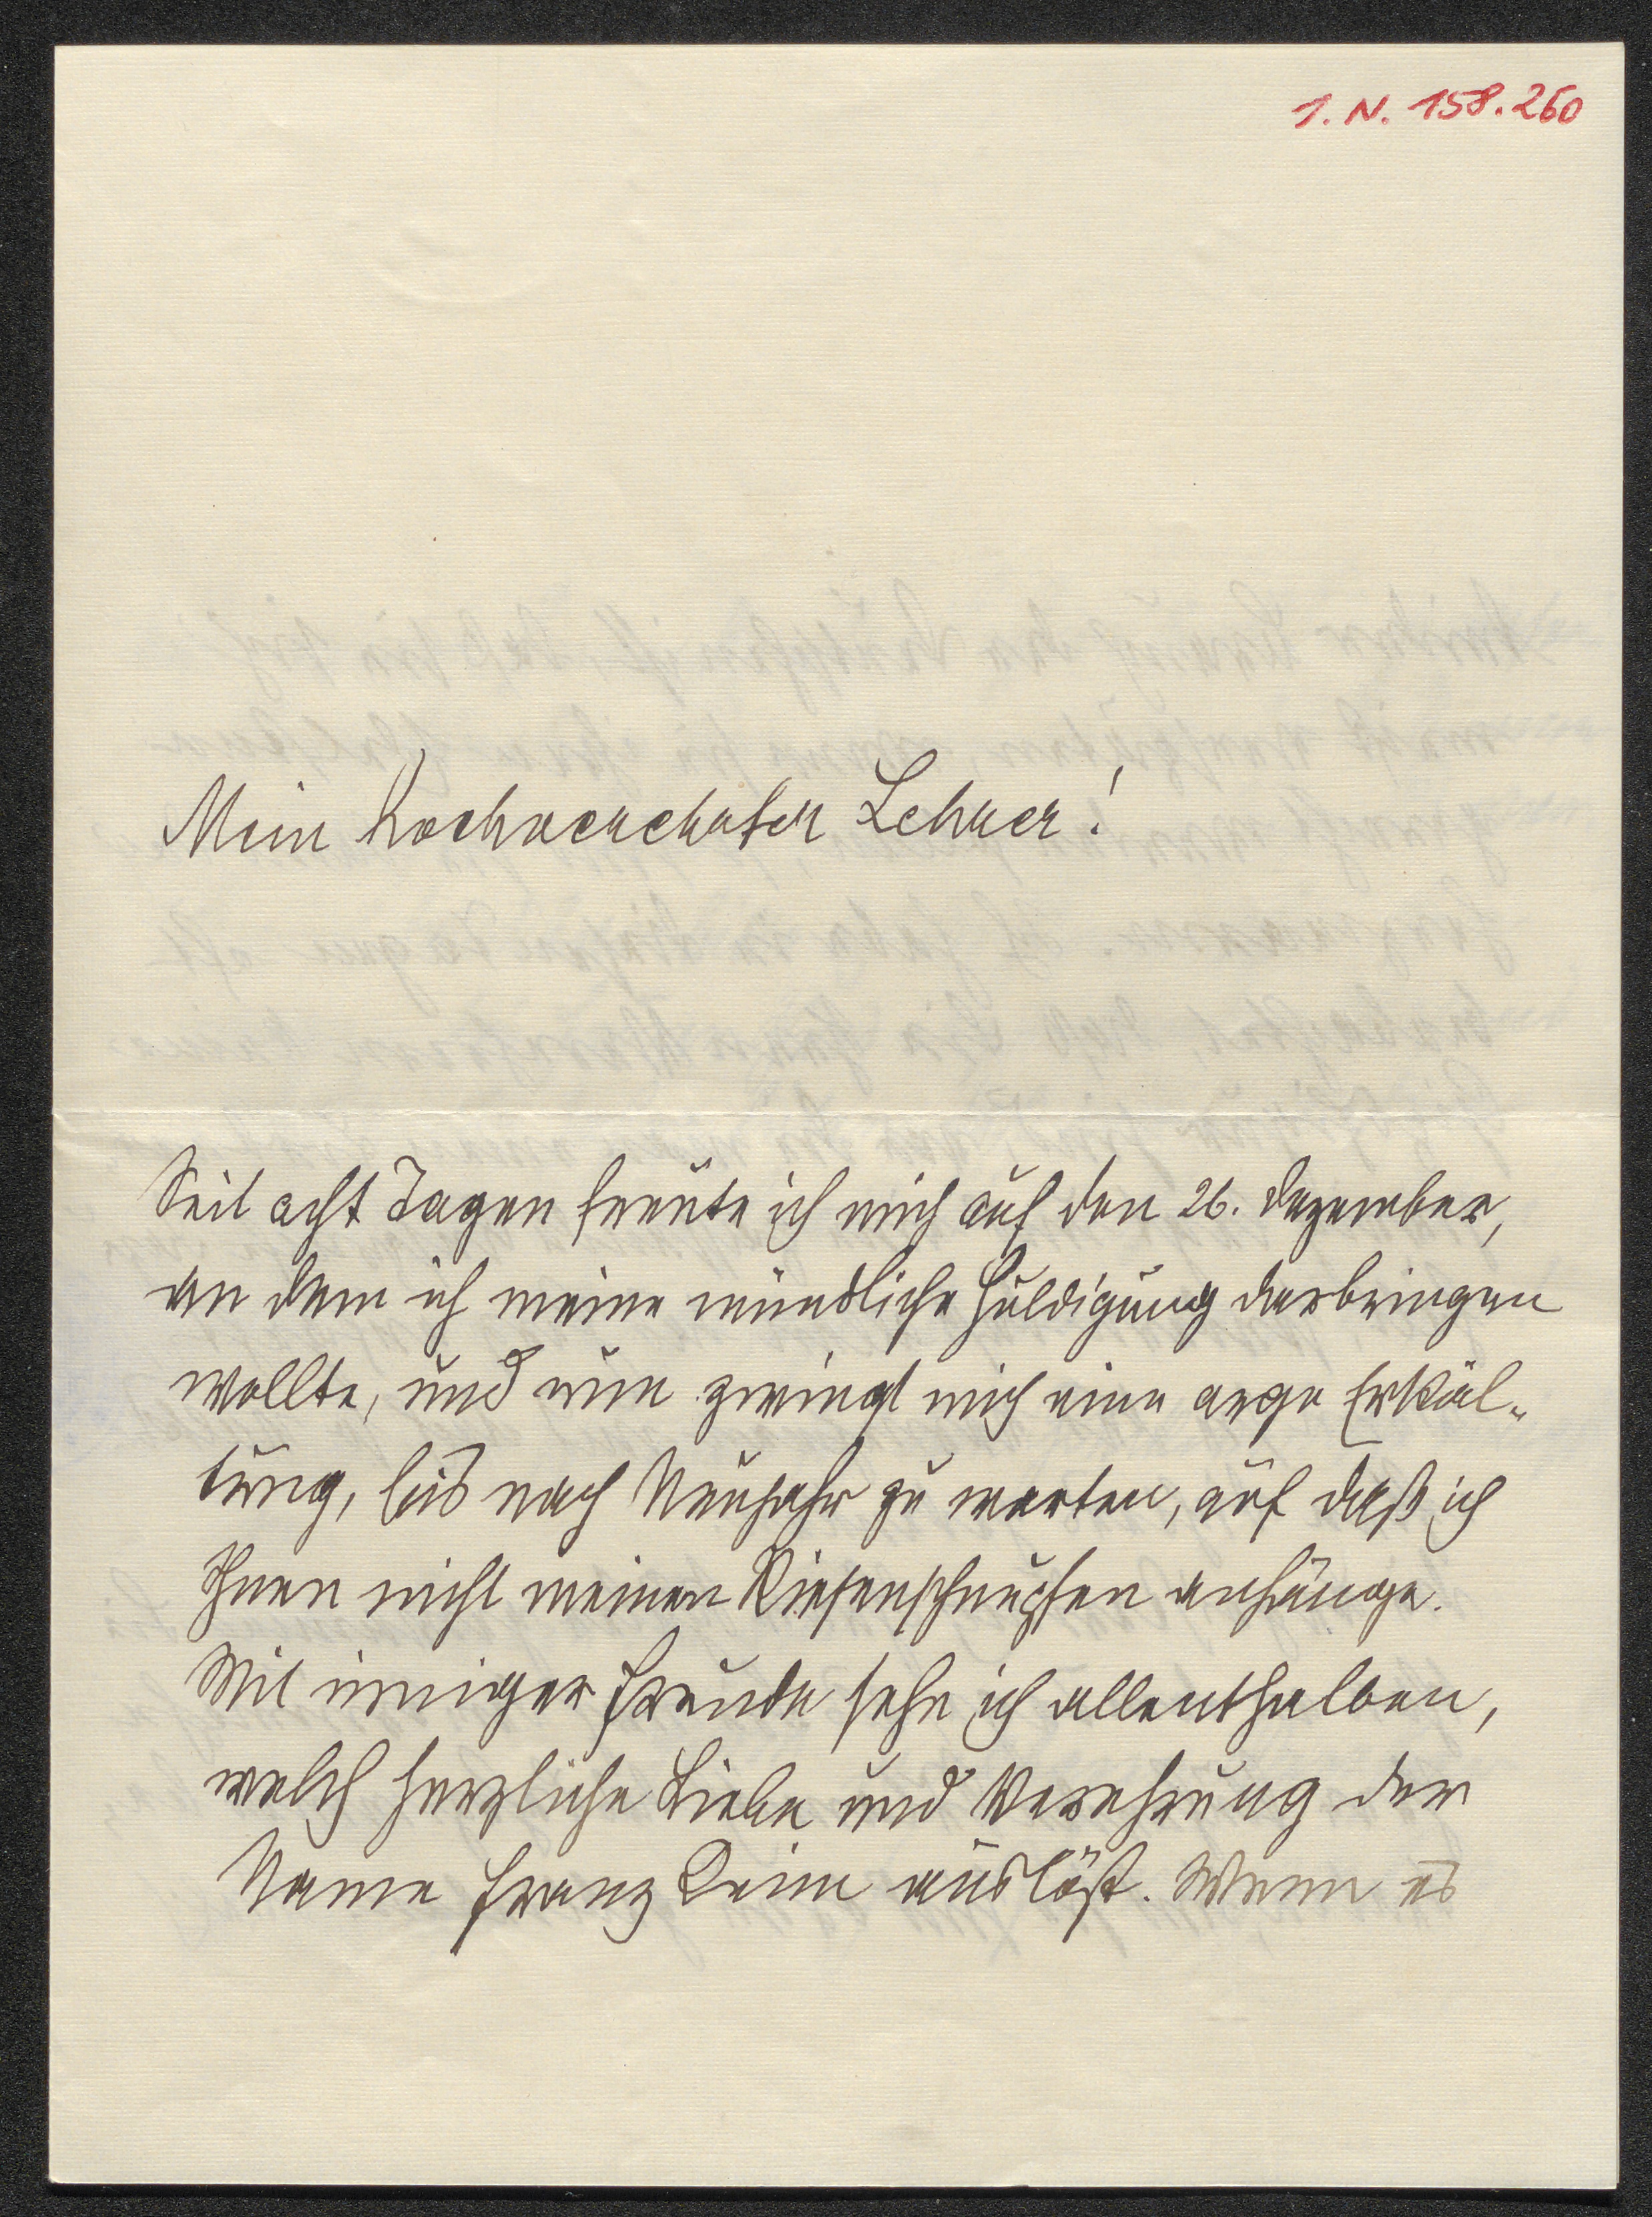 I. N. 158.260
Mein hochverehrter Lehrer!
Seit acht Tagen freute ich mich auf den 26. Dezember,
an dem ich meine mündliche Huldigung darbringen
wollte, und nun zwingt mich eine arge Erkäl-
tung, bis nach Neujahr zu warten, auf daß ich
Ihnen nicht meinen Riesenschnupfen anhänge.
Mit inniger Freude sehe ich allenthalben,
welch herzliche Liebe und Verehrung der
Name Franz Keim auslöst. Wenn es